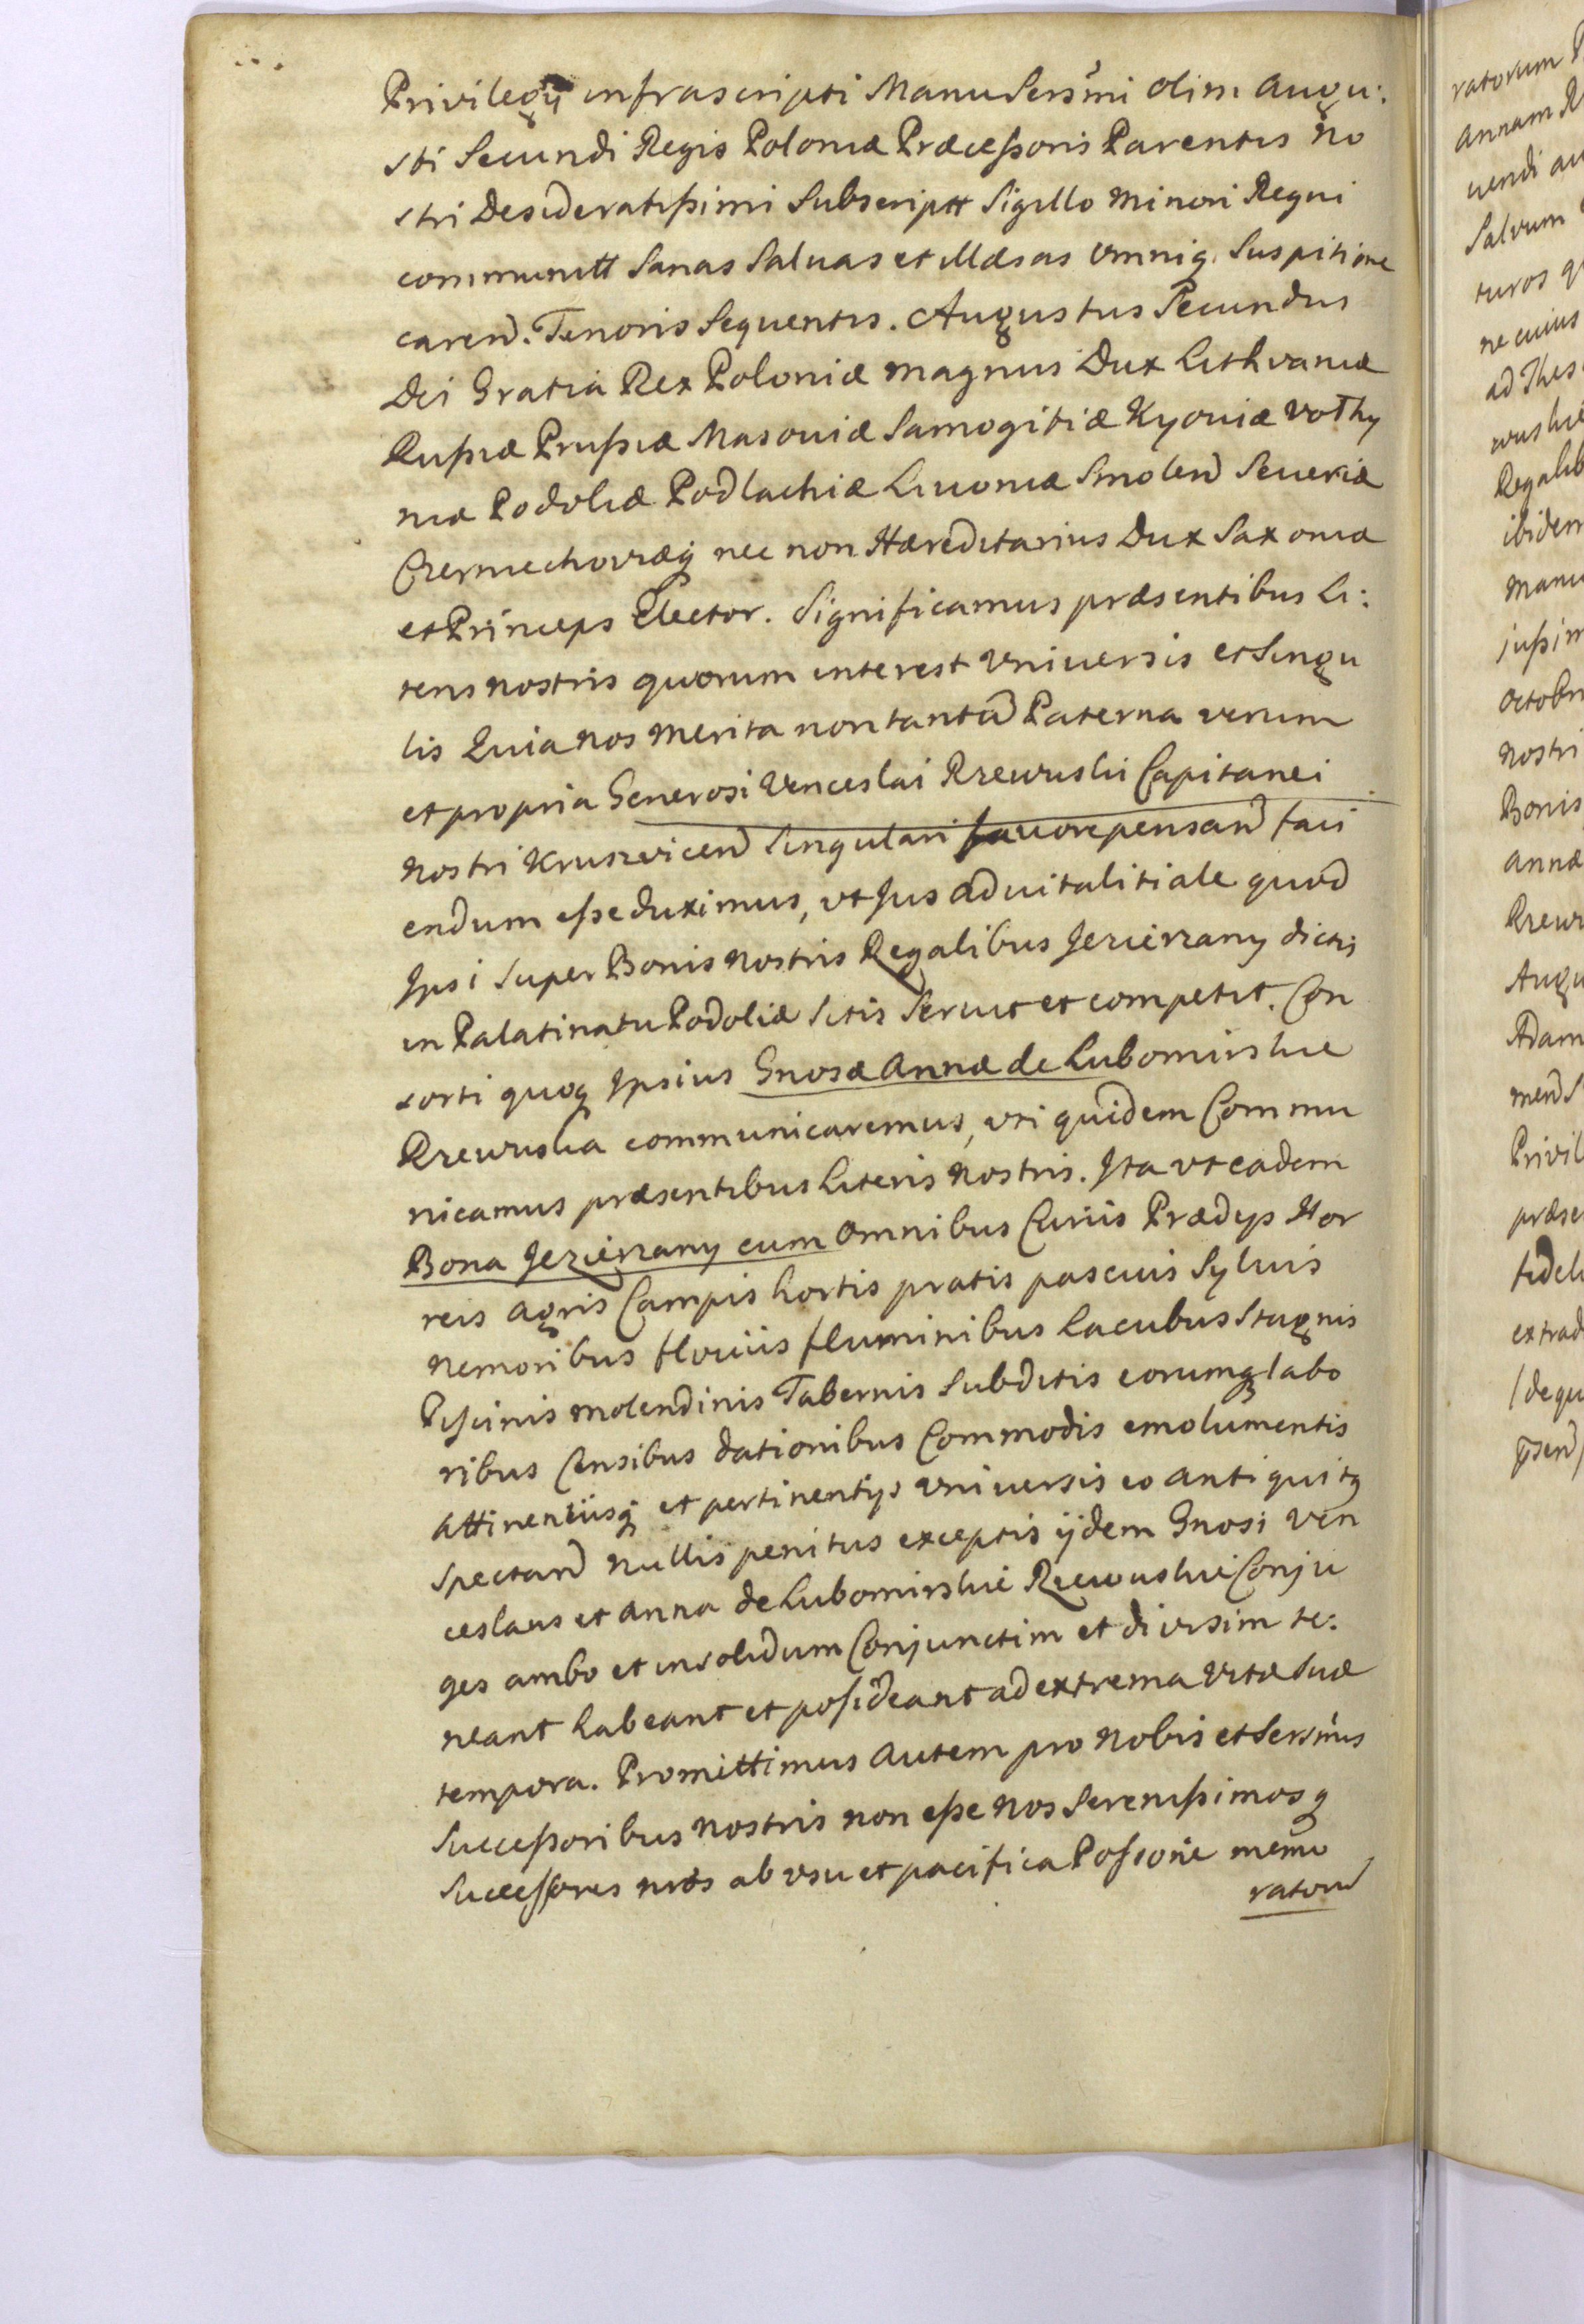 Privilegÿ infrascripti Manu Sersmi olim Augu:
sti Secundi Regis Poloniæ Præcessoris Parentis No
stri Desideratissimi Subscriptt Sigillo Minori Regni
communitt Sanas Saluas et illæsas omniq Suspitione
carend. Tenoris Sequentis. Augustus Secundus
Dei Gratia Rex Poloniæ Magnus Dux Lithvaniæ
Russiæ Prussiæ Masouiæ Samogitiæ Kyouiæ Volhy
niæ Podoliæ Podlachiæ Liuoniæ Smolend Seueriæ
Czerniechoviæq nec non Hæreditarius Dux Saxoniæ
et Princeps Elector. Significamus præsentibus Li:
teris nostris quorum interest Vniuersis et Singu
lis Quia nos Merita non tantu Paterna verum
et propria Generosi Venceslai Rzewuski Capitanei
Nostri Kruszvicend Singulari fauore pensand faci
endum esse duximus, vt Jus aduitalitiale quod
Jpsi Super Bonis nostris Regalibus Jezierzany dictis
in Palatinatu Podoliæ Sitis Seruit et competit. Con
sorti quoq Jpsius Gnosæ Annæ de Lubomirskie
Rzewuska communicaremus, vti quidem Commu
nicamus præsentibus Literis Nostris. Jta vt eadem
Bona Jezierzany cum omnibus Curiis Prædys Hor
reis Agris Campis hortis pratis pascuis Syluis
Nemoribus fluuiis fluminibus Lacubus Stagnis
Piscinis molendinis Tabernis Subditis eorumq labo
ribus Censibus dationibus Commodis emolumentis
Attinentiisq et pertinentys vniuersis eo antiquitq
Spectand nullis penitus exceptis ijdem Gnosi Ven
ceslaus et Anna de Lubomirskie Rzewuskie Conju
ges ambo et insolidum Conjunctim et diuisim te:
neant habeant et possideant ad extrema Vitæ Suæ
tempora. Promittimus Autem pro Nobis et Sersmis
Successoribus Nostris non esse Nos Serenissimosq
Successores nros ab vsu et pacifica Possione memo
ratorum
ratorum
Annam
uendi
Saluum
turos
ne cuius
ad
Regalib
ibidem
Manu
Octobr
Nostri
Bonis
Annæ
Rzewu
Augu
Adam
Privil
præse
fideli
extrad